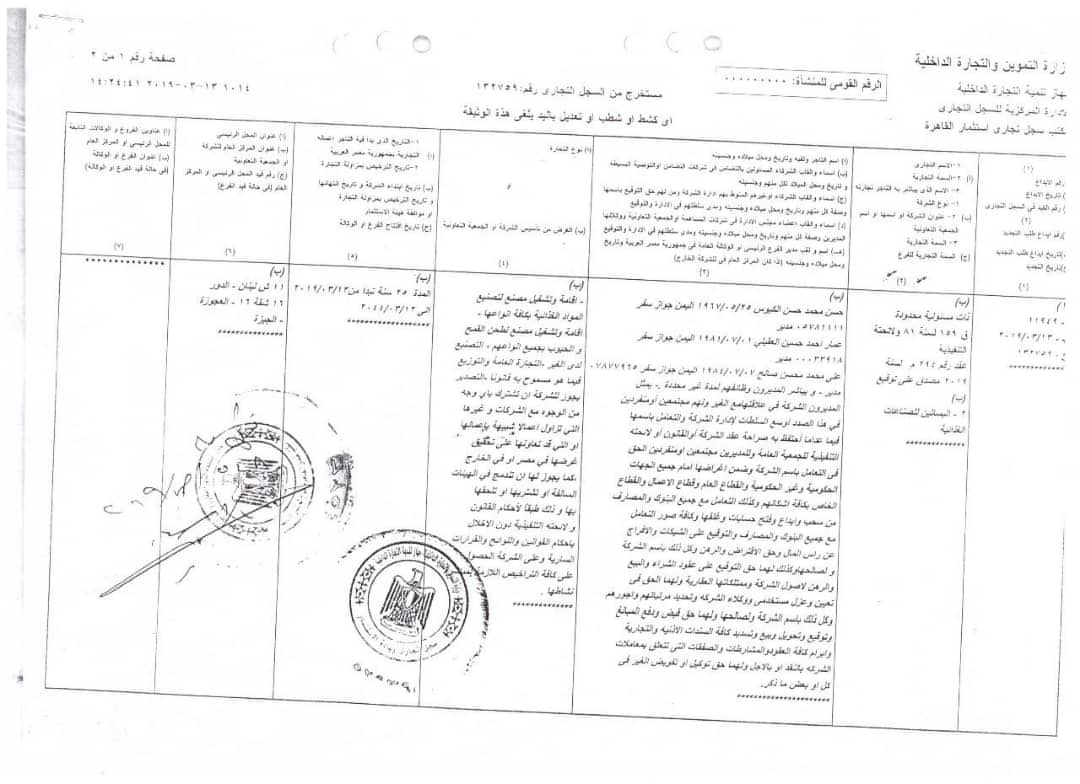 وزارة التموين والتجارة الداخلية
جهاز تنمية التجارة الداخلية
الإدارة المركزية للسجل التجارى
مكتب سجل تجارى استثمار القاهرة
الرقم القومى للمنشأة: ٠٠٠٠٠٠٠٠٠
صفحة رقم ١ من ٢
١٠١٤ ١٣-٠٣-٢٠١٩ ١٤:٢٤:٤١
مستخرج من السجل التجارى رقم: ١٣٢٧٥٩
اى كشط او شطب او تعديل باليد يلغى هذة الوثيقة
(١)
رقم الايداع
تاريخ الايداع
رقم القيد في السجل التجارى
(٢)
رقم ايداع طلب التجديد
تاريخ ايداع طلب التجديد
تاريخ التجديد
(١)
(أ) ١-الاسم التجارى
٢-السمة التجارية
٣- الاسم الذى يباشر به التاجر تجارته
(ب) ١- نوع الشركة
٢- عنوان الشركة او اسمها او اسم
الجمعية التعاونية
٣- السمة التجارية
(ج) السمة التجارية للفرع
(٢)
(أ) اسم التاجر ولقبه وتاريخ ومحل ميلاده وجنسيته
(ب) اسماء والقاب الشركاء المسئولين بالتضامن فى شركات التضامن والتوصية البسيطة
و تاريخ ومحل الميلاد لكل منهم وجنسيته
(ج) اسماء والقاب الشركاء اوغيرهم المنوط بهم ادارة الشركة ومن لهم حق التوقيع باسمها
وصفة كل منهم وتاريخ ومحل ميلاده وجنسيته ومدى سلطتهم فى الادارة والتوقيع
(د) اسماء والقاب اعضاء مجلس الادارة فى شركات المساهمة والجمعية التعاونية ووكلائها
المديرين وصفة كل منهم وتاريخ ومحل ميلاده وجنسيته ومدى سلطتهم فى الادارة والتوقيع
(هـ) اسم و لقب مدير الفرع الرئيسى او الوكالة العامة فى جمهورية مصر العربية وتاريخ
ومحل ميلاده وجنسيته (اذا كان المركز العام فى للشركة الخارج)
(٣)
(أ) نوع التجارة
و
(ب) الغرض من تأسيس الشركة او الجمعية التعاونية
(٤)
١-التاريخ الذى بدا فيه التاجر اعماله
(أ) التجارية بجمهورية مصر العربية
٢-تاريخ الترخيص بمزاولة التجارة
(ب) تاريخ ابتداء الشركة و تاريخ انتهائها
و تاريخ الترخيص بمزاولة التجارة
او موافقة هيئة الاستثمار
(ج) تاريخ افتتاح الفرع او الوكالة
(٥)
(أ) عنوان المحل الرئيسى
(ب) عنوان المركز العام للشركة
او الجمعية التعاونية
(ج) رقم قيد المحل الرئيسى او المركز
العام (في حالة قيد الفرع)
(٦)
(أ) عناوين الفروع و الوكالات التابعة
للمحل الرئيسى او المركز العام
(ب) عنوان الفرع او الوكالة
(في حالة قيد الفرع او الوكالة)
(٧)
١١٩٤٩ -
٢٠١٩/٠٣/١٣
١٣٢٧٥٩
**************
(ب)
ذات مسئولية محدودة
ق ١٥٩ لسنة ٨١ ولائحتة
التنفيذية
عقد رقم ٢٩٤م لسنة
٢٠١٩ مصدق على توقيع
(ب)
٢ - البساتين للصناعات
الغذائية
**************
(ب)
حسن محمد حسن الكبوس ١٩٦٧/٠٥/٢٥ اليمن جواز سفر
٠٥٧٨١١١١ مدير
عمار احمد حسين العقبلي ١٩٨١/٠٧/٠١ اليمن جواز سفر
٠٠٠٣٣٩١٨ مدير
على محمد محسن صالح ١٩٨٤/٠٧/٠٧ اليمن جواز سفر ٠٧٨٧٧٩٦٥
مدير - و يباشر المديرون وظائفهم لمدة غير محددة .- يمثل
المديرون الشركة في علاقتهامع الغير ولهم مجتمعين أومنفردين
في هذا الصدد اوسع السلطات لإدارة الشركة والتعامل باسمها
فيما عداما أحتفظ به صراحة عقد الشركة أوالقانون أو لائحته
التنفيذية للجمعية العامة وللمديرين مجتمعين اومنفردين الحق
فى التعامل باسم الشركة وضمن أغراضها امام جميع الجهات
الحكومية وغير الحكومية والقطاع العام وقطاع الاعمال والقطاع
الخاص بكافة اشكالهم وكذلك التعامل مع جميع البنوك والمصارف
من سحب وايداع وفتح حسابات وغلقها وكافة صور التعامل
مع جميع البنوك والمصارف والتوقيع على الشيكات والافراج
عن راس المال وحق الاقتراض والرهن وكل ذلك باسم الشركة
و لصالحهاوكذلك لهما حق التوقيع على عقود الشراء والبيع
والرهن لاصول الشركة وممتلكاتها العقارية ولهما الحق فى
تعيين وعزل مستخدمى ووكلاء الشركه وتحديد مرتباتهم واجورهم
وكل ذلك باسم الشركة ولصالحها ولهما حق قبض ودفع المبالغ
وتوقيع وتحويل وبيع وتسديد كافة السندات الأذنيه والتجارية
وابرام كافة العقودوالمشارطات والصفقات التى تتعلق بمعاملات
الشركه بالنقد او بالاجل ولهما حق توكيل او تفويض الغير فى
كل او بعض ما ذكر.
**************
(ب)
- اقامة وتشغيل مصنع لتصنيع
المواد الغذائية بكافة انواعها -
اقامة وتشغيل مصنع لطحن القمح
و الحبوب بجميع انواعهم - التصنيع
لدى الغير -التجارة العامة والتوزيع
فيما هو مسموح به قانونا -التصدير
يجوز للشركة ان تشترك بأي وجه
من الوجوه مع الشركات و غيرها
التي تزاول اعمالا شبيهة بإعمالها
او التي قد تعاونها على تحقيق
غرضها في مصر او في الخارج
،كما يجوز لها ان تندمج في الهيئات
السالفة او تشتريها او تلحقها
بها و ذلك طبقا لأحكام القانون
و لائحته التنفيذية دون الاخلال
باحكام القوانين واللوائح والقرارات
السارية وعلى الشركة الحصول
على كافة التراخيص اللازمة
نشاطها .
**************
(ب)
المدة ٢٥ سنة تبدا من٢٠١٩/٠٣/١٣
الى ٢٠٤٤/٠٣/١٢
**************
(ب)
١١ ش لبنان - الدور
١٦ شقة ١٦ - العجوزة
- الجيزة
**************
**************